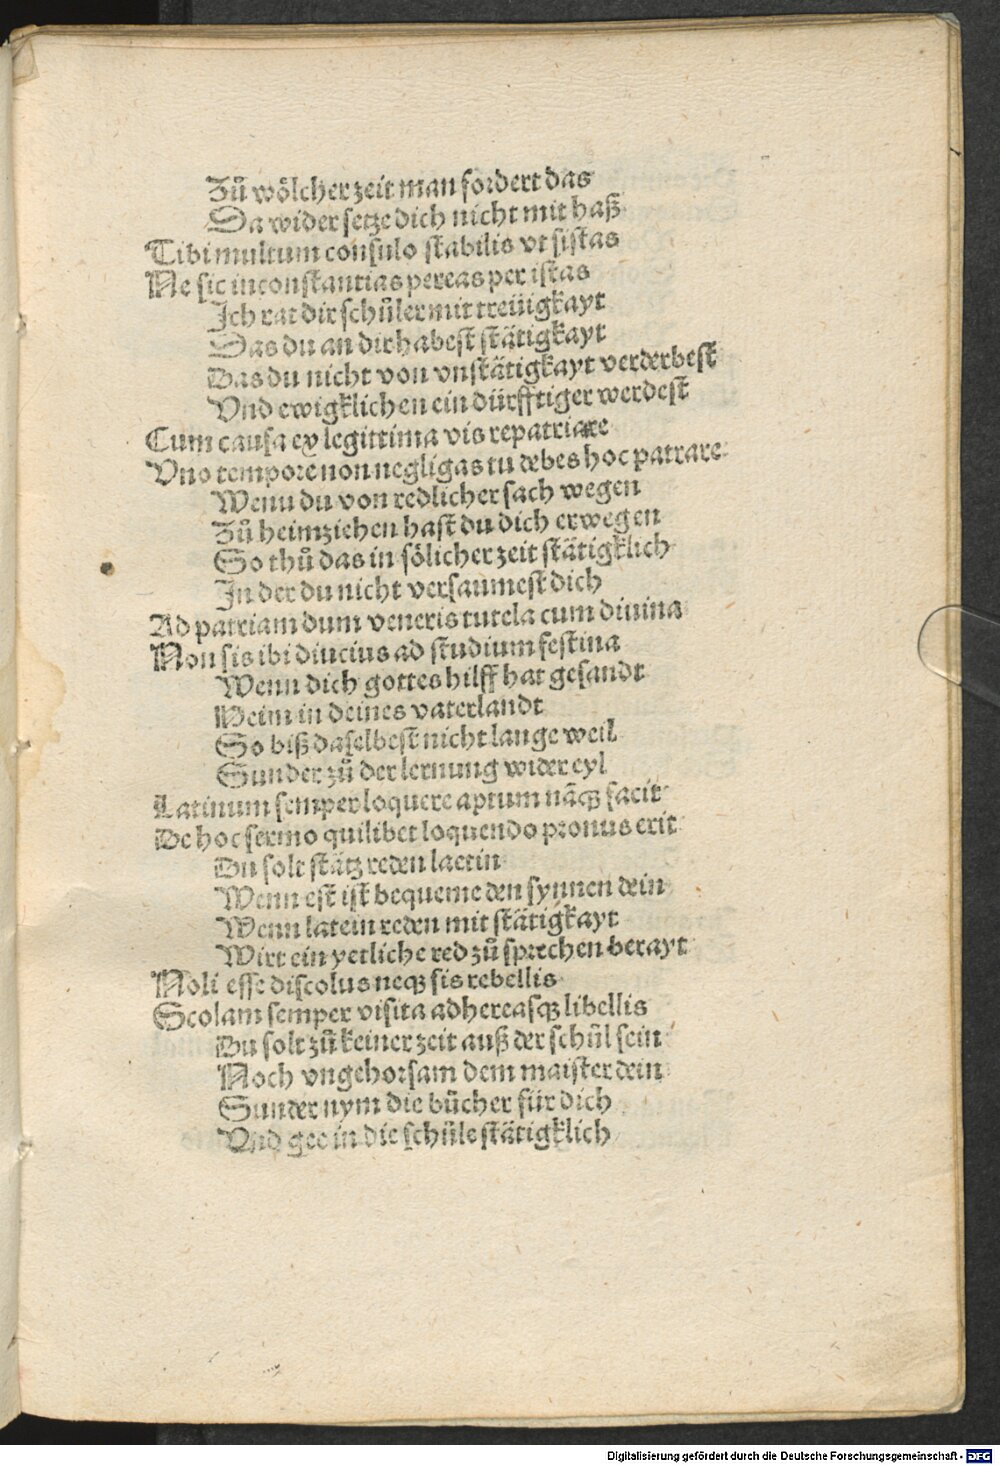 Zů wölcher zeit man fordert das
Da wider setze dich nicht mit haß
Tibi multum consulo stabilis vt sistas
Ne sic inconstantias pereas per istas
Ich rat dir schůler mit treüigkayt
Das du an dir habest stätigkayt
Das du nicht von vnstätigkayt verderbest
Vnd ewigklichen ein dürfftiger werdest
Cum causa ex legittima vis repatriare
Vno tempore non negligas tu debes hoc patrare
Wenn du von redlicher sach wegen
Zů heimziehen hast du dich erwegen
So thů das in sölicher zeit stätigklich
In der du nicht versaumest dich
Ad patriam dum veneris tutela cum diuina
Non sis ibi diucius ad studium festina
Wenn dich gottes hilff hat gesandt
Heim in deines vaterlandt
So biß daselbest nicht lange weil
Sunder zů der lernung wider eyl
Latinum semper loquere aptum nāqꝫ facit
De hoc sermo quilibet loquendo pronus erit
Du solt stätz reden laetin
Wenn est ist bequeme den synnen dein
Wenn latein reden mit stätigkayt
Wirt ein yetliche red zů sprechen berayt
Noli esse discolus neqꝫ sis rebellis
Scolam semper visita adhereasqꝫ libellis
Du solt zů keiner zeit auß der schůl sein
Noch vngehorsam dem maister dein
Sunder nym die bücher für dich
Vnd gee in die schůle stätigklich
Digitalisierung gefördert durch die Deutsche Forschungsgemeinschaft - DFG